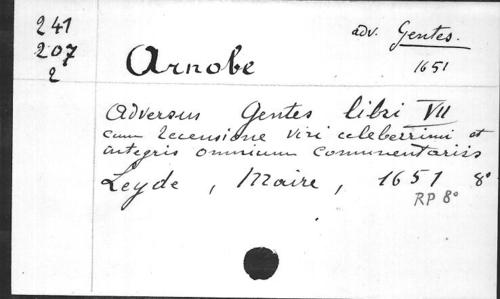 241
207
2
adv. Gentes.
Arnobe
1651
Adversus Gentes libri VII
cum recensione viri celeberrimi et
integris omnium commentariis
Leyde, Maire, 1651 8°
RP 8°